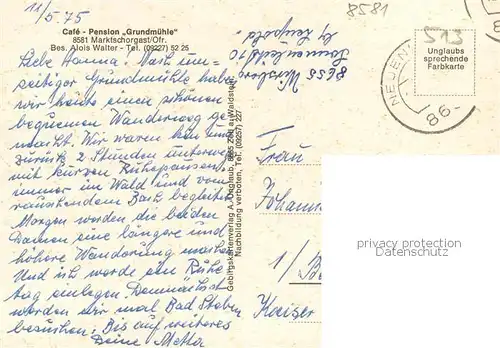 11/5.75
8581
Café - Pension „Grundmühle"
8581 Marktschorgast/Ofr.
Bes. Alois Walter - Tel. (09227) 52 25
Liebe Hanna! Nach um-
seitiger Grundmühle haben
wir heute einen schönen
bequemen Wanderweg ge-
macht. Wir waren hin und
zurück 2 Stunden unterwegs
mit kurzen Ruhepausen
immer im Wald und vom
rauschendem Bach begleitet
Morgen werden die beiden
Damen eine längere und
höhere Wanderung machen
Und ich werde ein Ruhe
tag einlegen. Demnächst
werden wir mal Bad Steben
besuchen. Bis auf weiteres
Deine Metta
8655 Wirsberg
Sonnenleite 10
by Leupold
Gebirgskartenverlag A. Unglaub, 8662 Zell a. Waldstein
Nachbildung verboten, Tel. (09257) 227
513
Unglaubs
sprechende
Farbkarte
NEUEN
86
Frau
Johanna
1/
Kaiser
PRIVATSAMMLUNG
PERSONAL COLLECTION